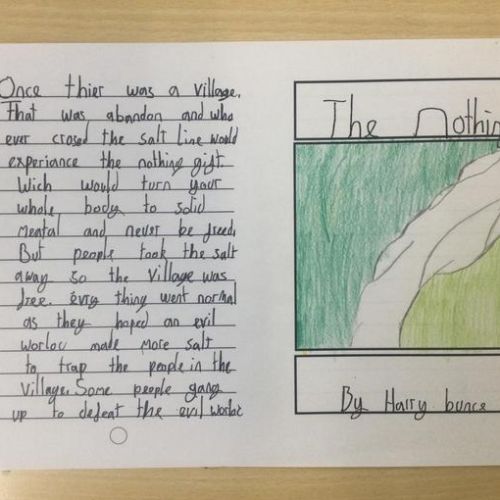 Once thier was a village.
That was abandon and who
ever crosed the salt line would
experiance the nothing gift.
Wich would turn your
whole body to solid
mental and never be freed.
But people took the salt
away so the village was
free. evry thing went normal
as they hoped an evil
worloc made more salt
to trap the people in the
village. Some people gang
up to defeat the evil worloc
The Nothin
By Harry bunce